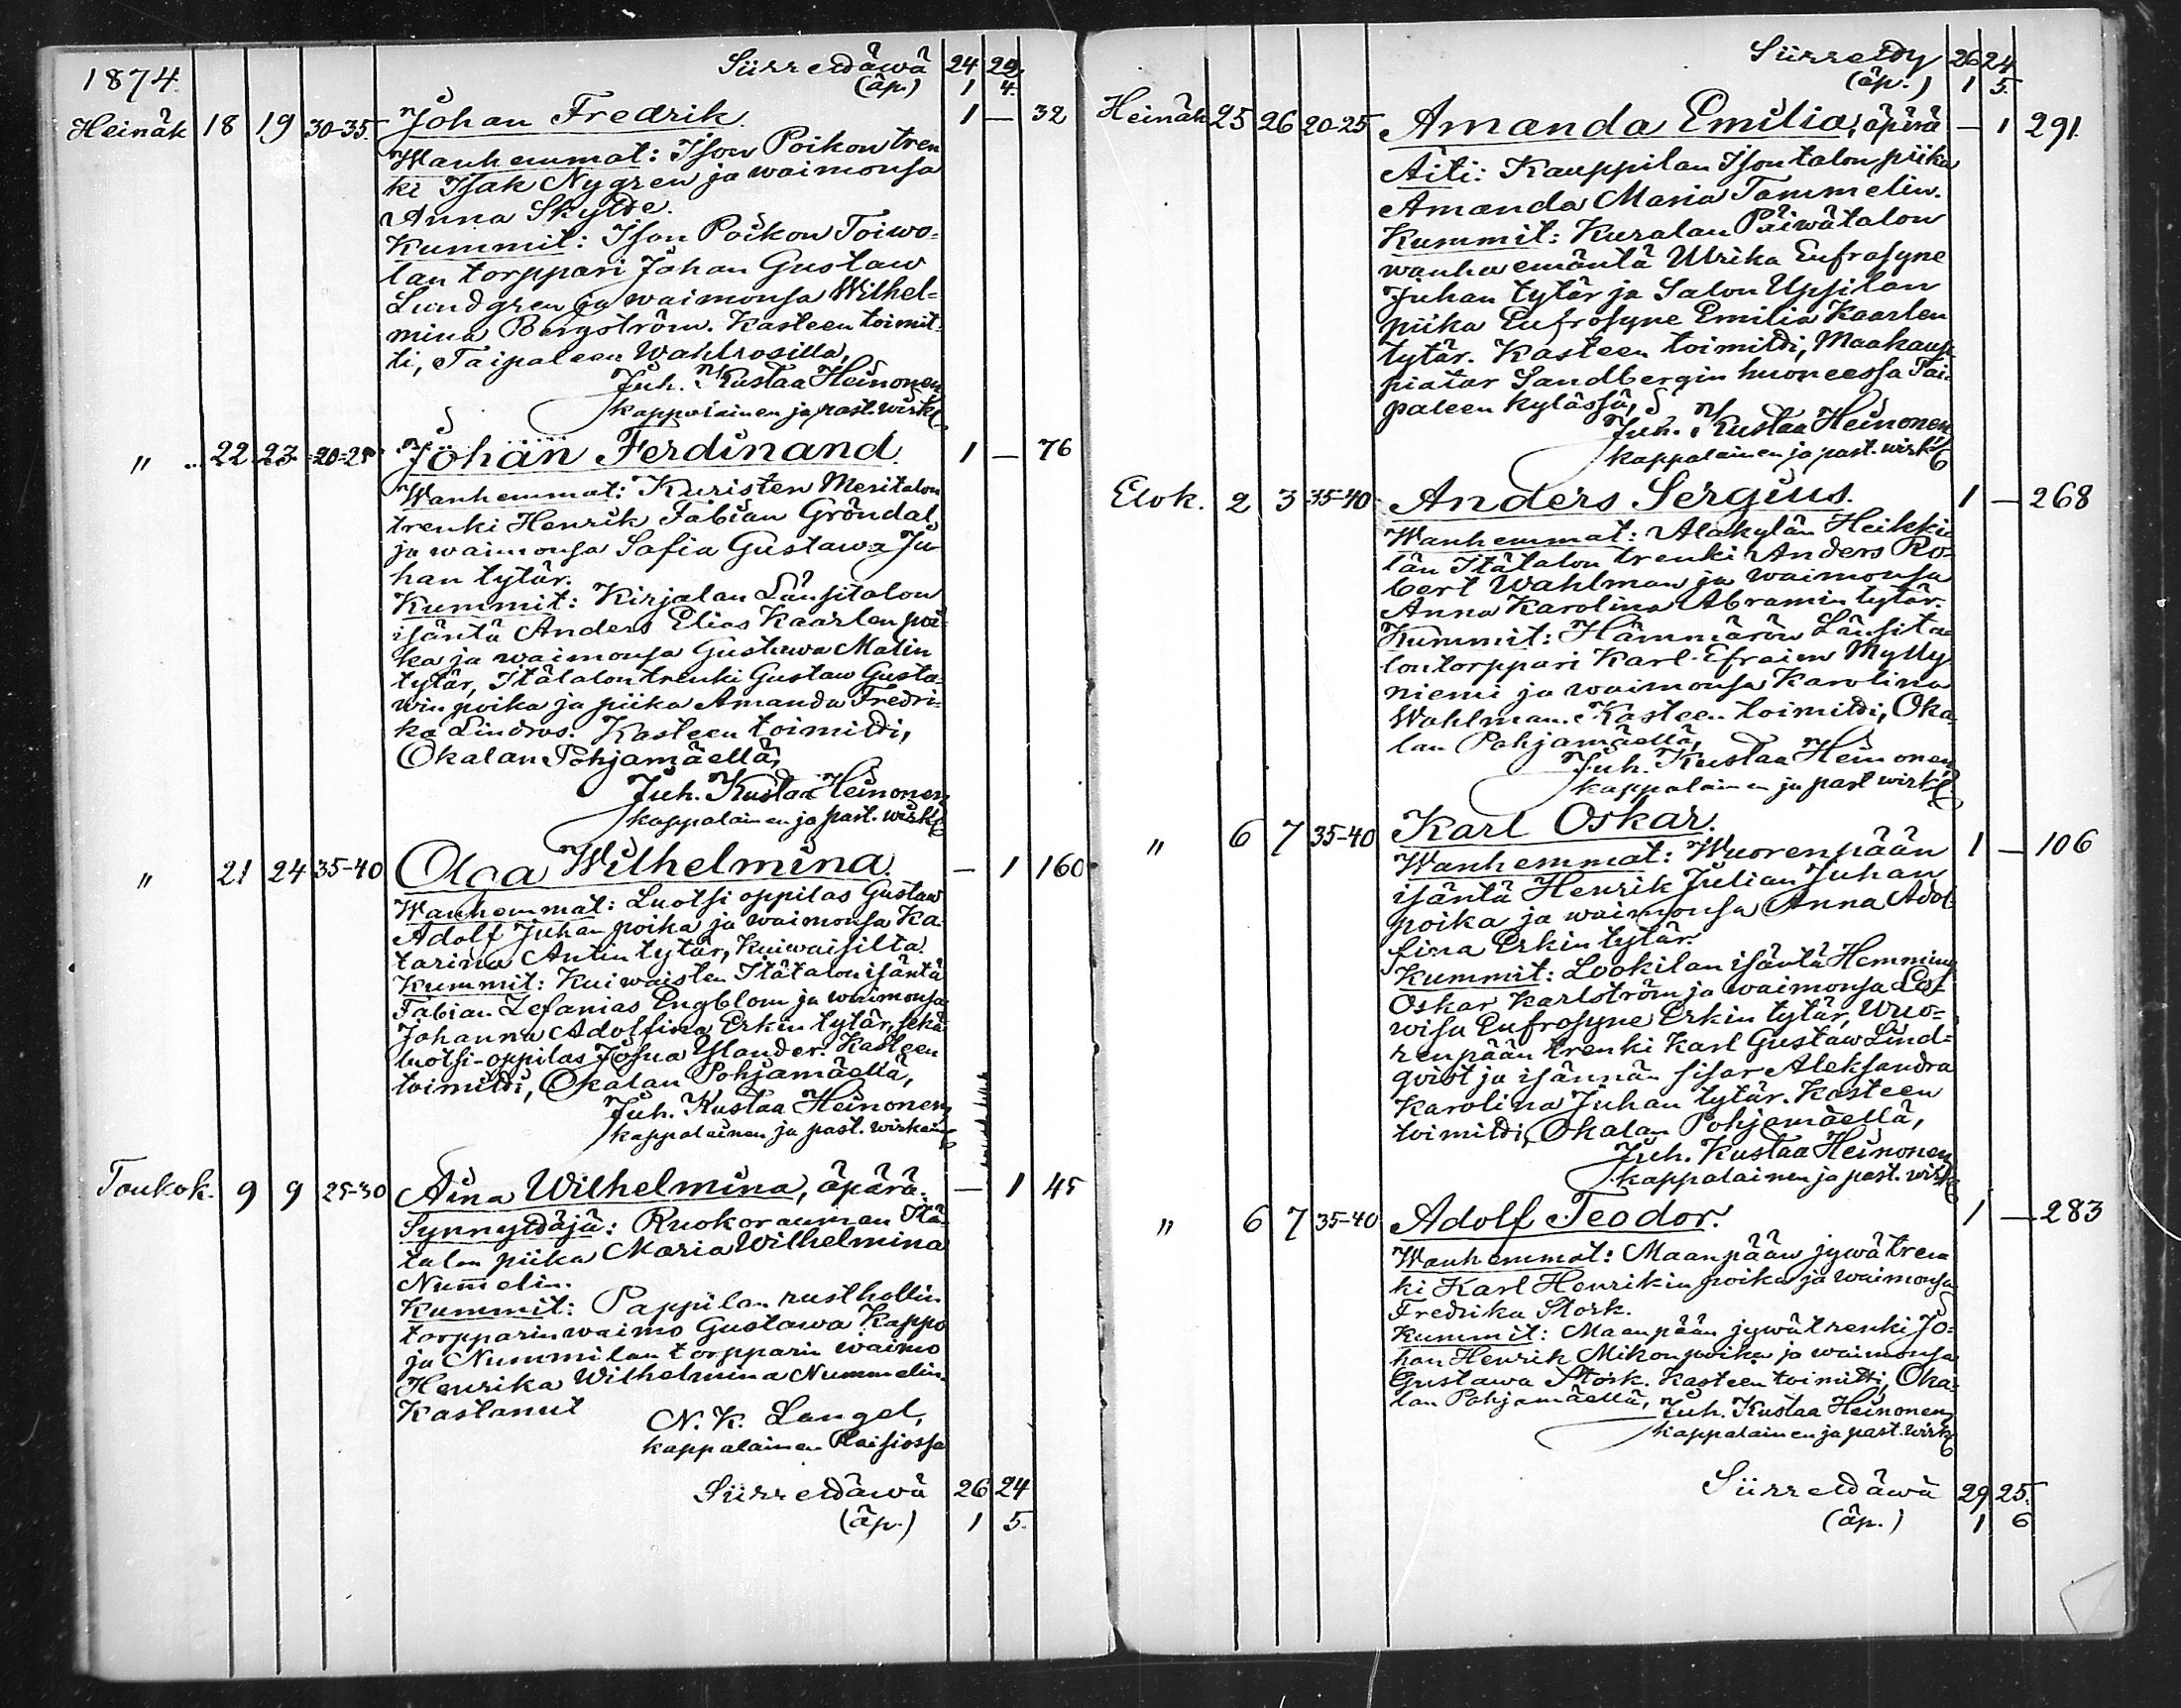 1874. Siirrettäwä 24 22
(äp.) 1 4.
Heinäk 18 19 30-35. Johan Fredrik. 1 — 32
Wanhemmat: Ison Poikon tren
ki Isak Nygren ja waimonsa
Anna Skylde.
Kummit: Ison Poikon Toiwo-
lan torppari Johan Gustaw
Lundgren ja waimonsa Wilhel-
mina Bergström. Kasteen toimit-
ti, Taipaleen Wahlrosilla,
Juh. Kustaa Heinonen
kappalainen ja past. wirk.
" 22 23 20-25 Johan Ferdinand. 1 — 76
Wanhemmat: Kuristen Meritalon
trenki Henrik Fabian Gröndal
ja waimonsa Sofia Gustawa Ju-
han tytär.
Kummit: Kirjalan Länsitalon
isäntä Anders Elias Kaarlen poi-
ka ja waimonsa Gustawa Matin
tytär, Itätalon trenki Gustaw Gusta-
win poika ja piika Amanda Fredri-
ka Lindros. Kasteen toimitti,
Okalan Pohjamäellä,
Juh. Kustaa Heinonen
kappalainen ja past. wirk.
" 21 24 35-40 Olga Wilhelmina. — 1 160
Wanhemmat: Luotsi oppilas Gustaw
Adolf Juhan poika ja waimonsa Ka-
tarina Antin tytär, Kuiwaisilta.
Kummit: Kuiwaisten Itätalon isäntä
Fabian Zefanias Engblom ja waimonsa
Johanna Adolfina Erkin tytär, sekä
luotsi-oppilas Josua Ylander. Kasteen
toimitti, Okalan Pohjamäellä,
Juh. Kustaa Heinonen
kappalainen ja past. wirkain
Toukok. 9 9 25-30 Aina Wilhelmina, äpärä. — 1 45
Synnyttäjä: Ruokorauman Itä-
talon piika Maria Wilhelmina
Num̄elin.
Kummit: Pappilan rusthollin
torpparin waimo Gustawa Kappo
ja Nummilan torpparin waimo
Henrika Wilhelmina Nummelin.
Kastanut
N. K. Langel,
kappalainen Raisiossa
Siirrettäwä 26 24
(äp.) 1 5.
Siirretty 26 24
(äp.) 1 5.
Heinäk 25 26 20-25 Amanda Emilia, äpärä — 1 291.
Äiti: Kauppilan Isontalon piika
Amanda Maria Tammelin.
Kummit: Kuralan Päiwätalon
wanha emäntä Ulrika Eufrosyne
Juhan tytär ja Salon Uppilan
piika Eufrosyne Emilia Kaarlen
tytär. Kasteen toimitti, Maakaup-
piatar Sandbergin huoneessa Tai-
paleen kylässä,
Juh. Kustaa Heinonen
kappalainen ja past. wirk.
Elok. 2 3 35-40 Anders Sergius. 1 — 268
Wanhemmat: Alakylän Heikki-
län Itätalon trenki Anders Ro-
bert Wahlman ja waimonsa
Anna Karolina Abramin tytär.
Kummit: Hämmärön Länsita-
lon torppari Karl Efraim Mylly-
niemi ja waimonsa Karolina
Wahlman. Kasteen toimitti, Oka-
lan Pohjamäellä,
Juh. Kustaa Heinonen
kappalainen ja past wirk.
" 6 7 35-40 Karl Oskar. 1 — 106
Wanhemmat: Wuorenpään
isäntä Henrik Julian Juhan
poika ja waimonsa Anna Adol-
fina Erkin tytär.
Kummit: Lookilan isäntä Hemming
Oskar Karlström ja waimonsa Lo-
wisa Eufrosyne Erkin tytär, Wuo-
renpään trenki Karl Gustaw Lind-
qvist ja isännän sisar Aleksandra
Karolina Juhan tytär. Kasteen
toimitti, Okalan Pohjamäellä,
Juh. Kustaa Heinonen
kappalainen ja past. wirk.
" 6 7 35-40 Adolf Teodor. 1 — 283
Wanhemmat: Maanpään jywätren
ki Karl Henrikin poika ja waimonsa
Fredrika Stork.
Kummit: Maanpään jywätrenki Jo-
han Henrik Mikon poika ja waimonsa
Gustawa Stork. Kasteen toimitti, Oka-
lan Pohjamäellä, Juh. Kustaa Heinonen
kappalainen ja past. wirk.
Siirrettäwä 29 25.
(äp.) 1 6